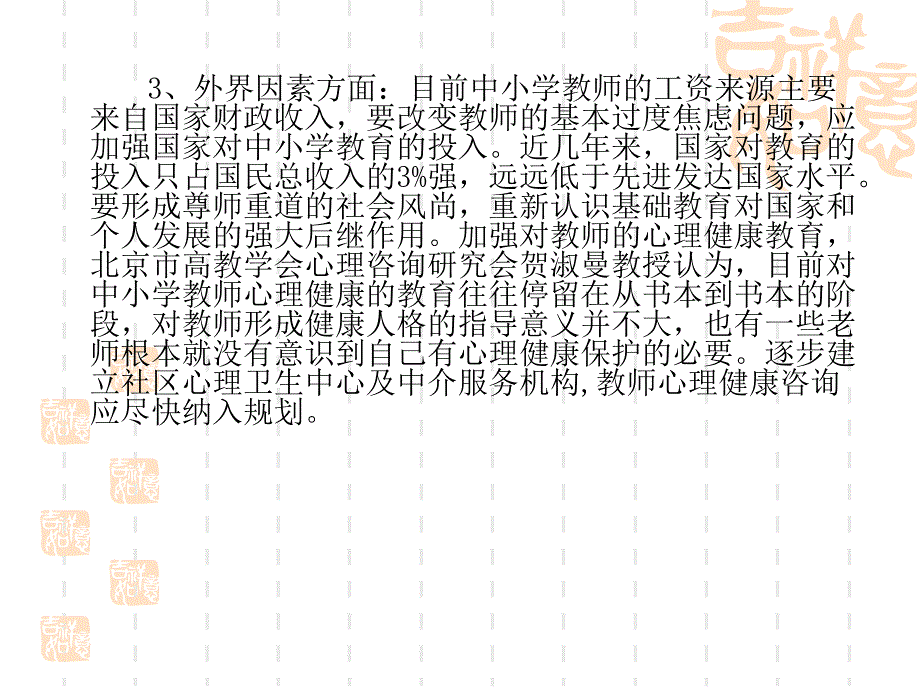 吉祥如意
3、外界因素方面：目前中小学教师的工资来源主要
来自国家财政收入，要改变教师的基本过度焦虑问题，应
加强国家对中小学教育的投入。近几年来，国家对教育的
投入只占国民总收入的3%强，远远低于先进发达国家水平。
要形成尊师重道的社会风尚，重新认识基础教育对国家和
个人发展的强大后继作用。加强对教师的心理健康教育，
北京市高教学会心理咨询研究会贺淑曼教授认为，目前对
中小学教师心理健康的教育往往停留在从书本到书本的阶
段，对教师形成健康人格的指导意义并不大，也有一些老
师根本就没有意识到自己有心理健康保护的必要。逐步建
立社区心理卫生中心及中介服务机构,教师心理健康咨询
应尽快纳入规划。
吉祥如意
吉祥如意
吉祥如意
吉祥如意
吉祥如意